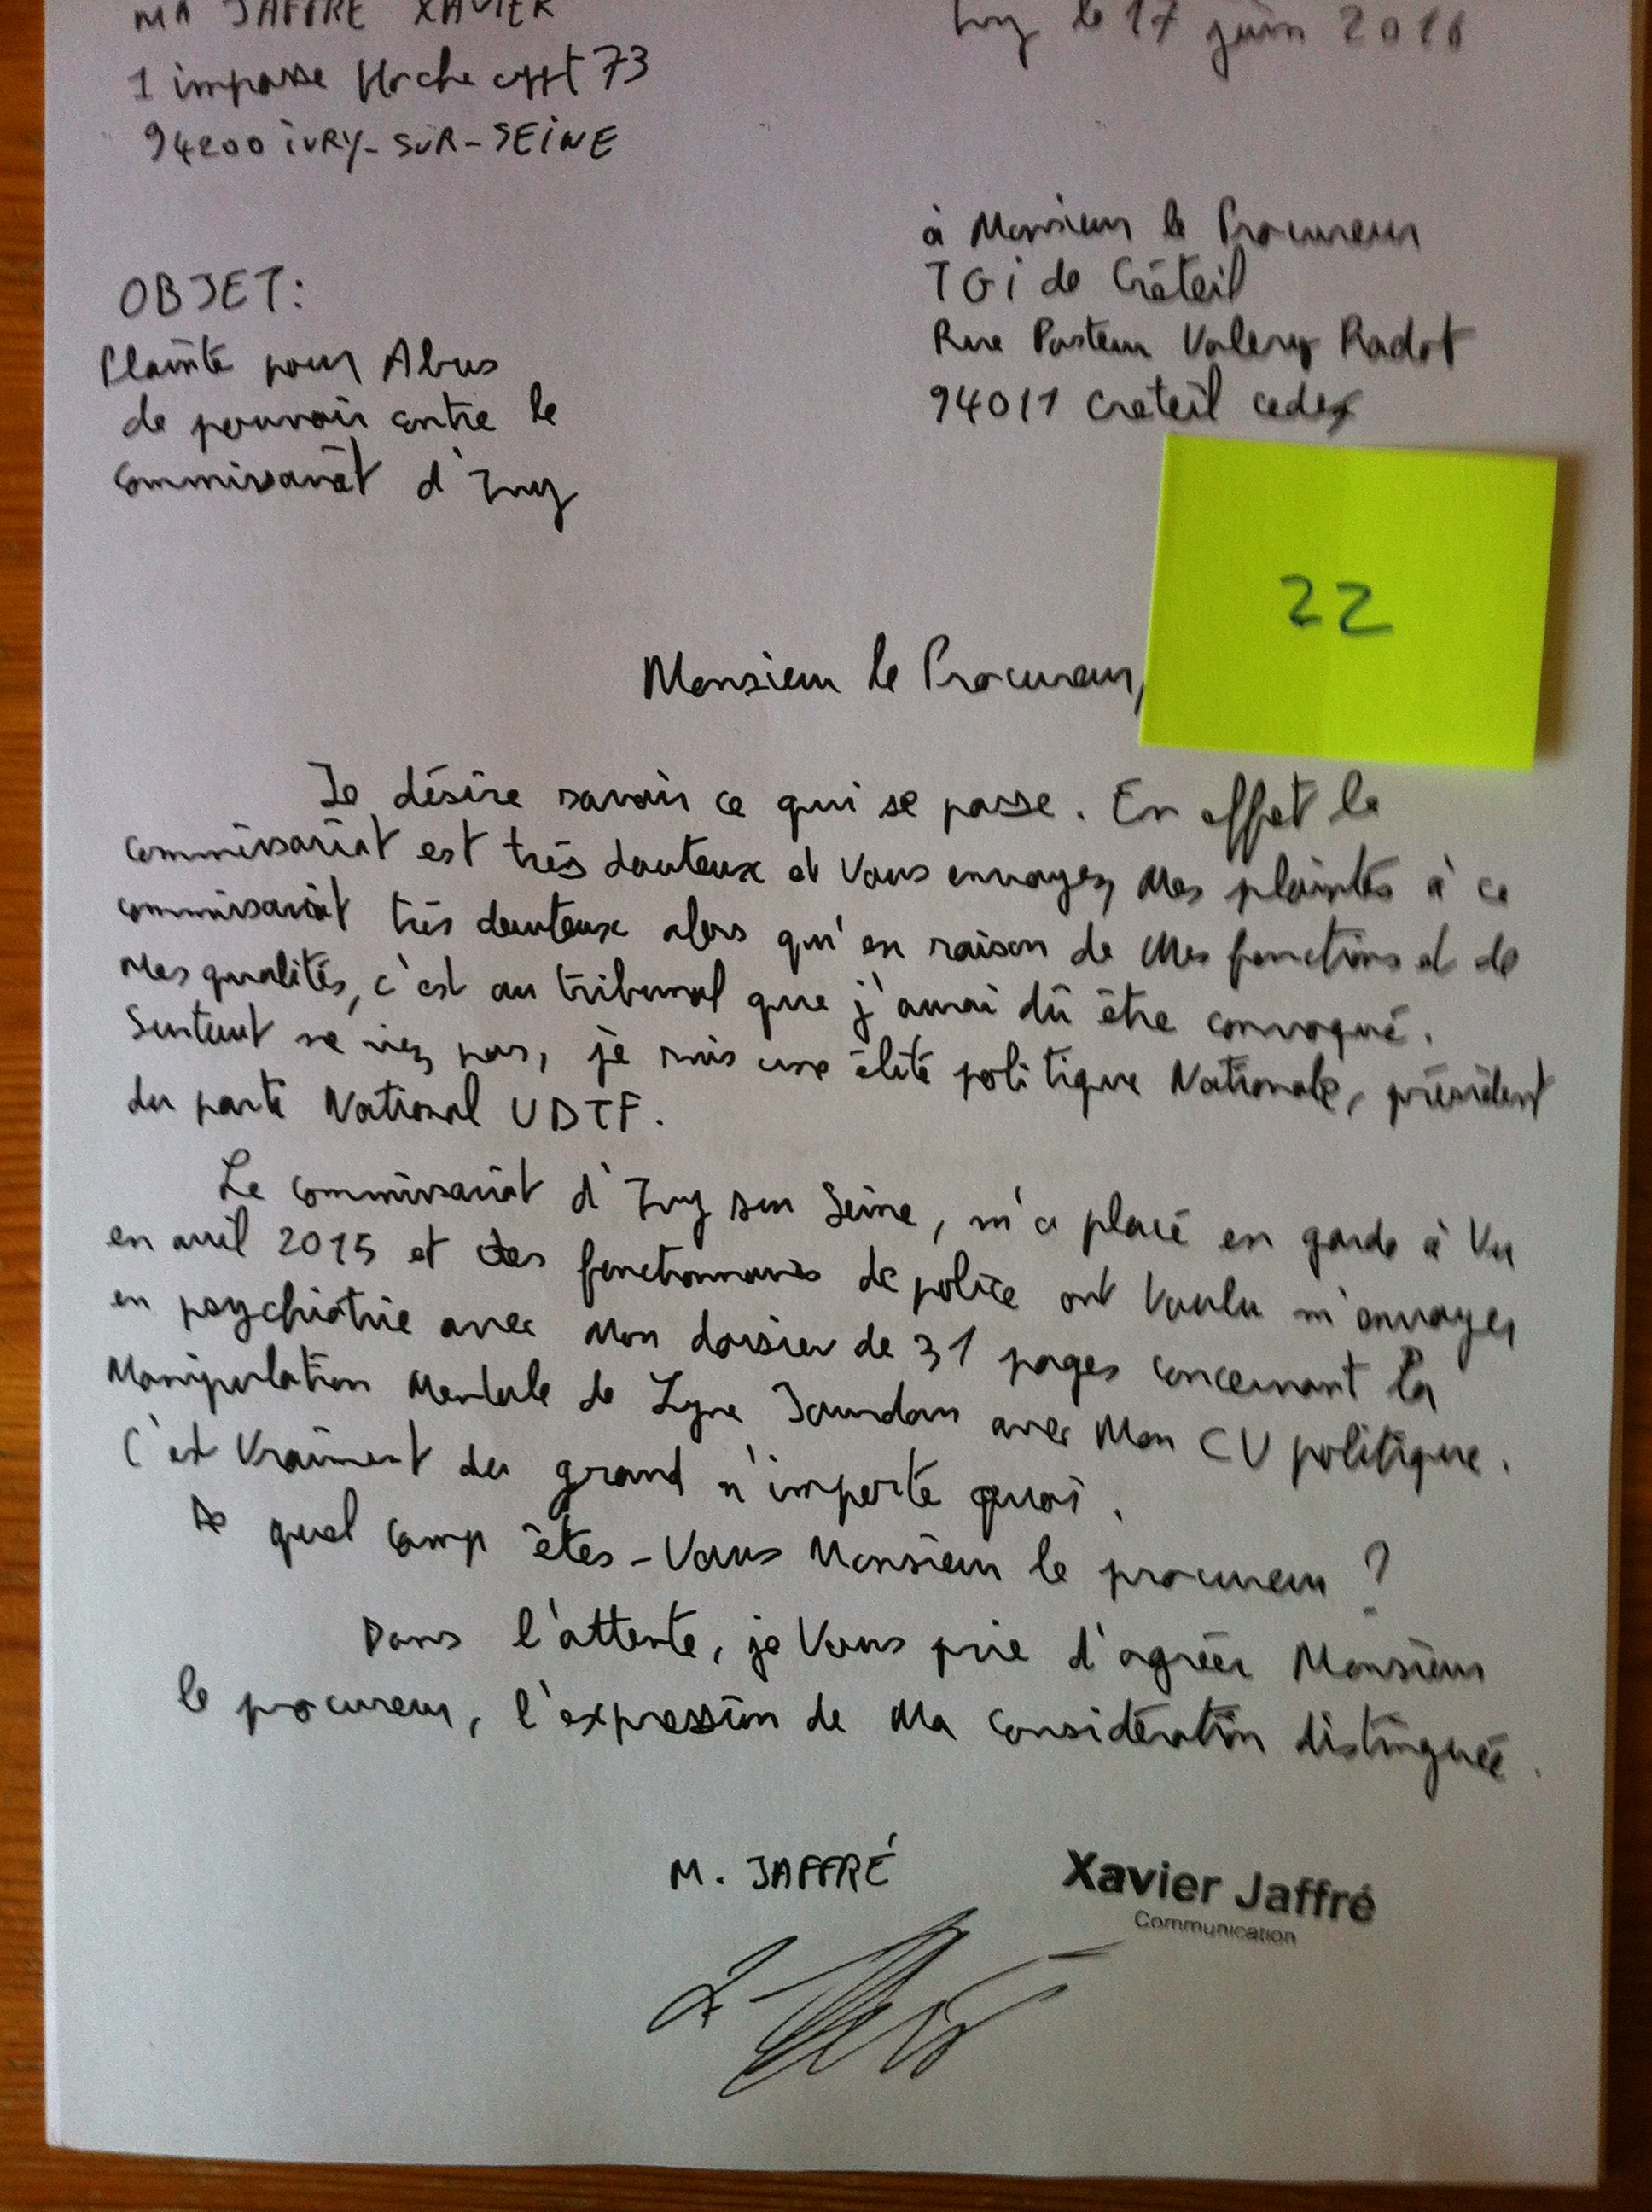 MR JAFFRE XAVIER
Ivry le 17 juin 2016
1 impasse Hoche appt 73
94200 iVRY-SUR-SEINE
à Monsieur le Procureur
TGi de Créteil
Rue Pasteur Valery Radot
94011 Creteil cedex
OBJET:
Plainte pour Abus
de pouvoir contre le
commissariat d'Ivry
22
Monsieur le Procureur,
Je désire savoir ce qui se passe. En effet le
commissariat est très douteux et vous envoyez mes plaintes à ce
commissariat très douteux alors qu'en raison de mes fonctions et de
mes qualités, c'est au tribunal que j'aurai dû être convoqué.
Surtout ne riez pas, je suis une élite politique Nationale, président
du parti National UDTF.
Le commissariat d'Ivry sur Seine, m'a placé en garde à vu
en avril 2015 et des fonctionnaires de police ont voulu m'envoyer
en psychiatrie avec mon dossier de 31 pages concernant la
Manipulation Mentale de Lyne Jourdan avec mon CV politique.
C'est vraiment du grand n'importe quoi.
De quel camp êtes-vous Monsieur le procureur ?
Dans l'attente, je vous prie d'agréer Monsieur
le procureur, l'expression de ma considération distinguée.
M. JAFFRÉ
Xavier Jaffré
Communication